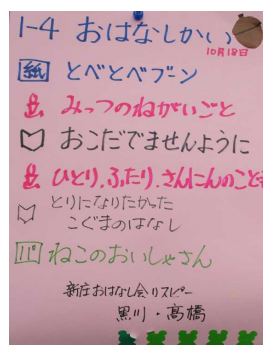 1-4 おはなしかい
10月18日
紙 とべとべブーン
み みっつのねがいごと
おこだでませんように
み ひとり,ふたり,さんにんのこども
とりになりたかった
こぐまのはなし
パ ねこのおいしゃさん
新庄おはなし会リスピー
黒川・高橋